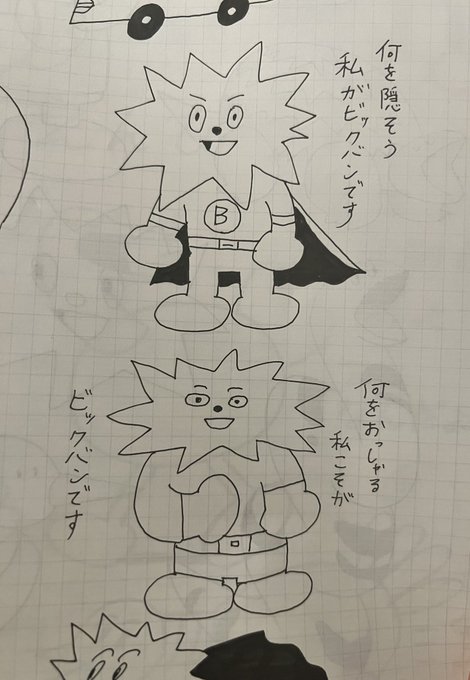 何を隠そう
私がビックバンです
B
何をおっしゃる
私こそが
ビックバンです